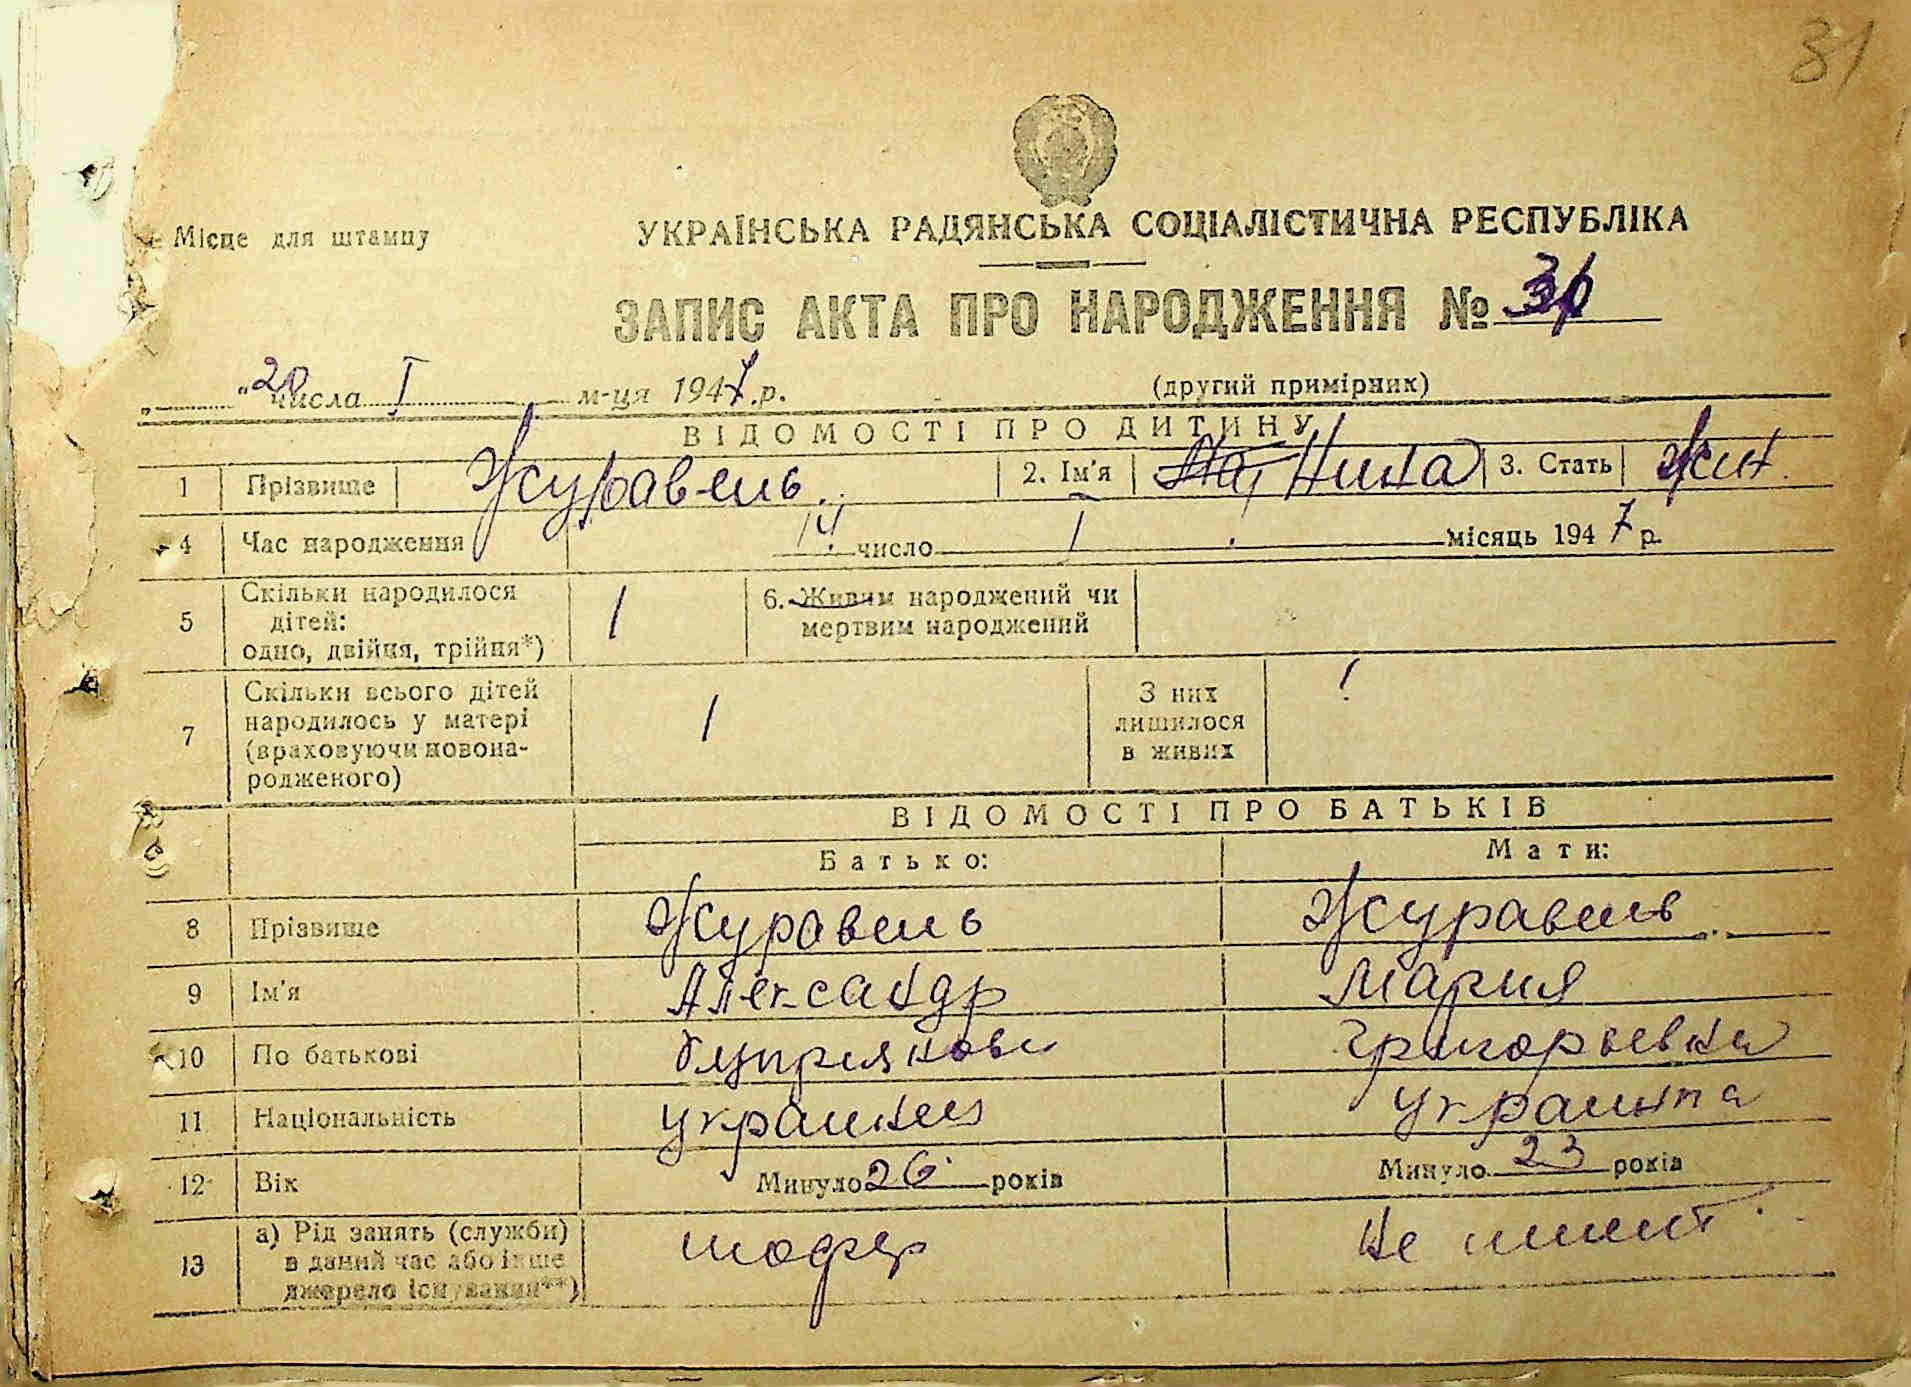 31
Місце для штампу
УКРАЇНСЬКА РАДЯНСЬКА СОЦІАЛІСТИЧНА РЕСПУБЛІКА
ЗАПИС АКТА ПРО НАРОДЖЕННЯ №
„ " 20 числа I м-ця 1947 р. (другий примірник)
ВІДОМОСТІ ПРО ДИТИНУ
1 Прізвище Журавель 2. Ім'я Нина 3. Стать жін.
4 Час народження 14 число 1 місяць 1947 р.
5 Скільки народилося дітей: одно, двійня, трійня*) 1 6. Живим народжений чи мертвим народжений
7 Скільки всього дітей народилось у матері (враховуючи новонародженого) 1 З них лишилося в живих 1
ВІДОМОСТІ ПРО БАТЬКІВ
Батько: Мати:
8 Прізвище Журавель Журавель
9 Ім'я Александр Мария
10 По батькові Григорьевна
11 Національність украинец украинка
12 Вік Минуло 26 років Минуло 23 років
13 а) Рід занять (служби) в даний час або інше джерело існування**) шофер не имеет